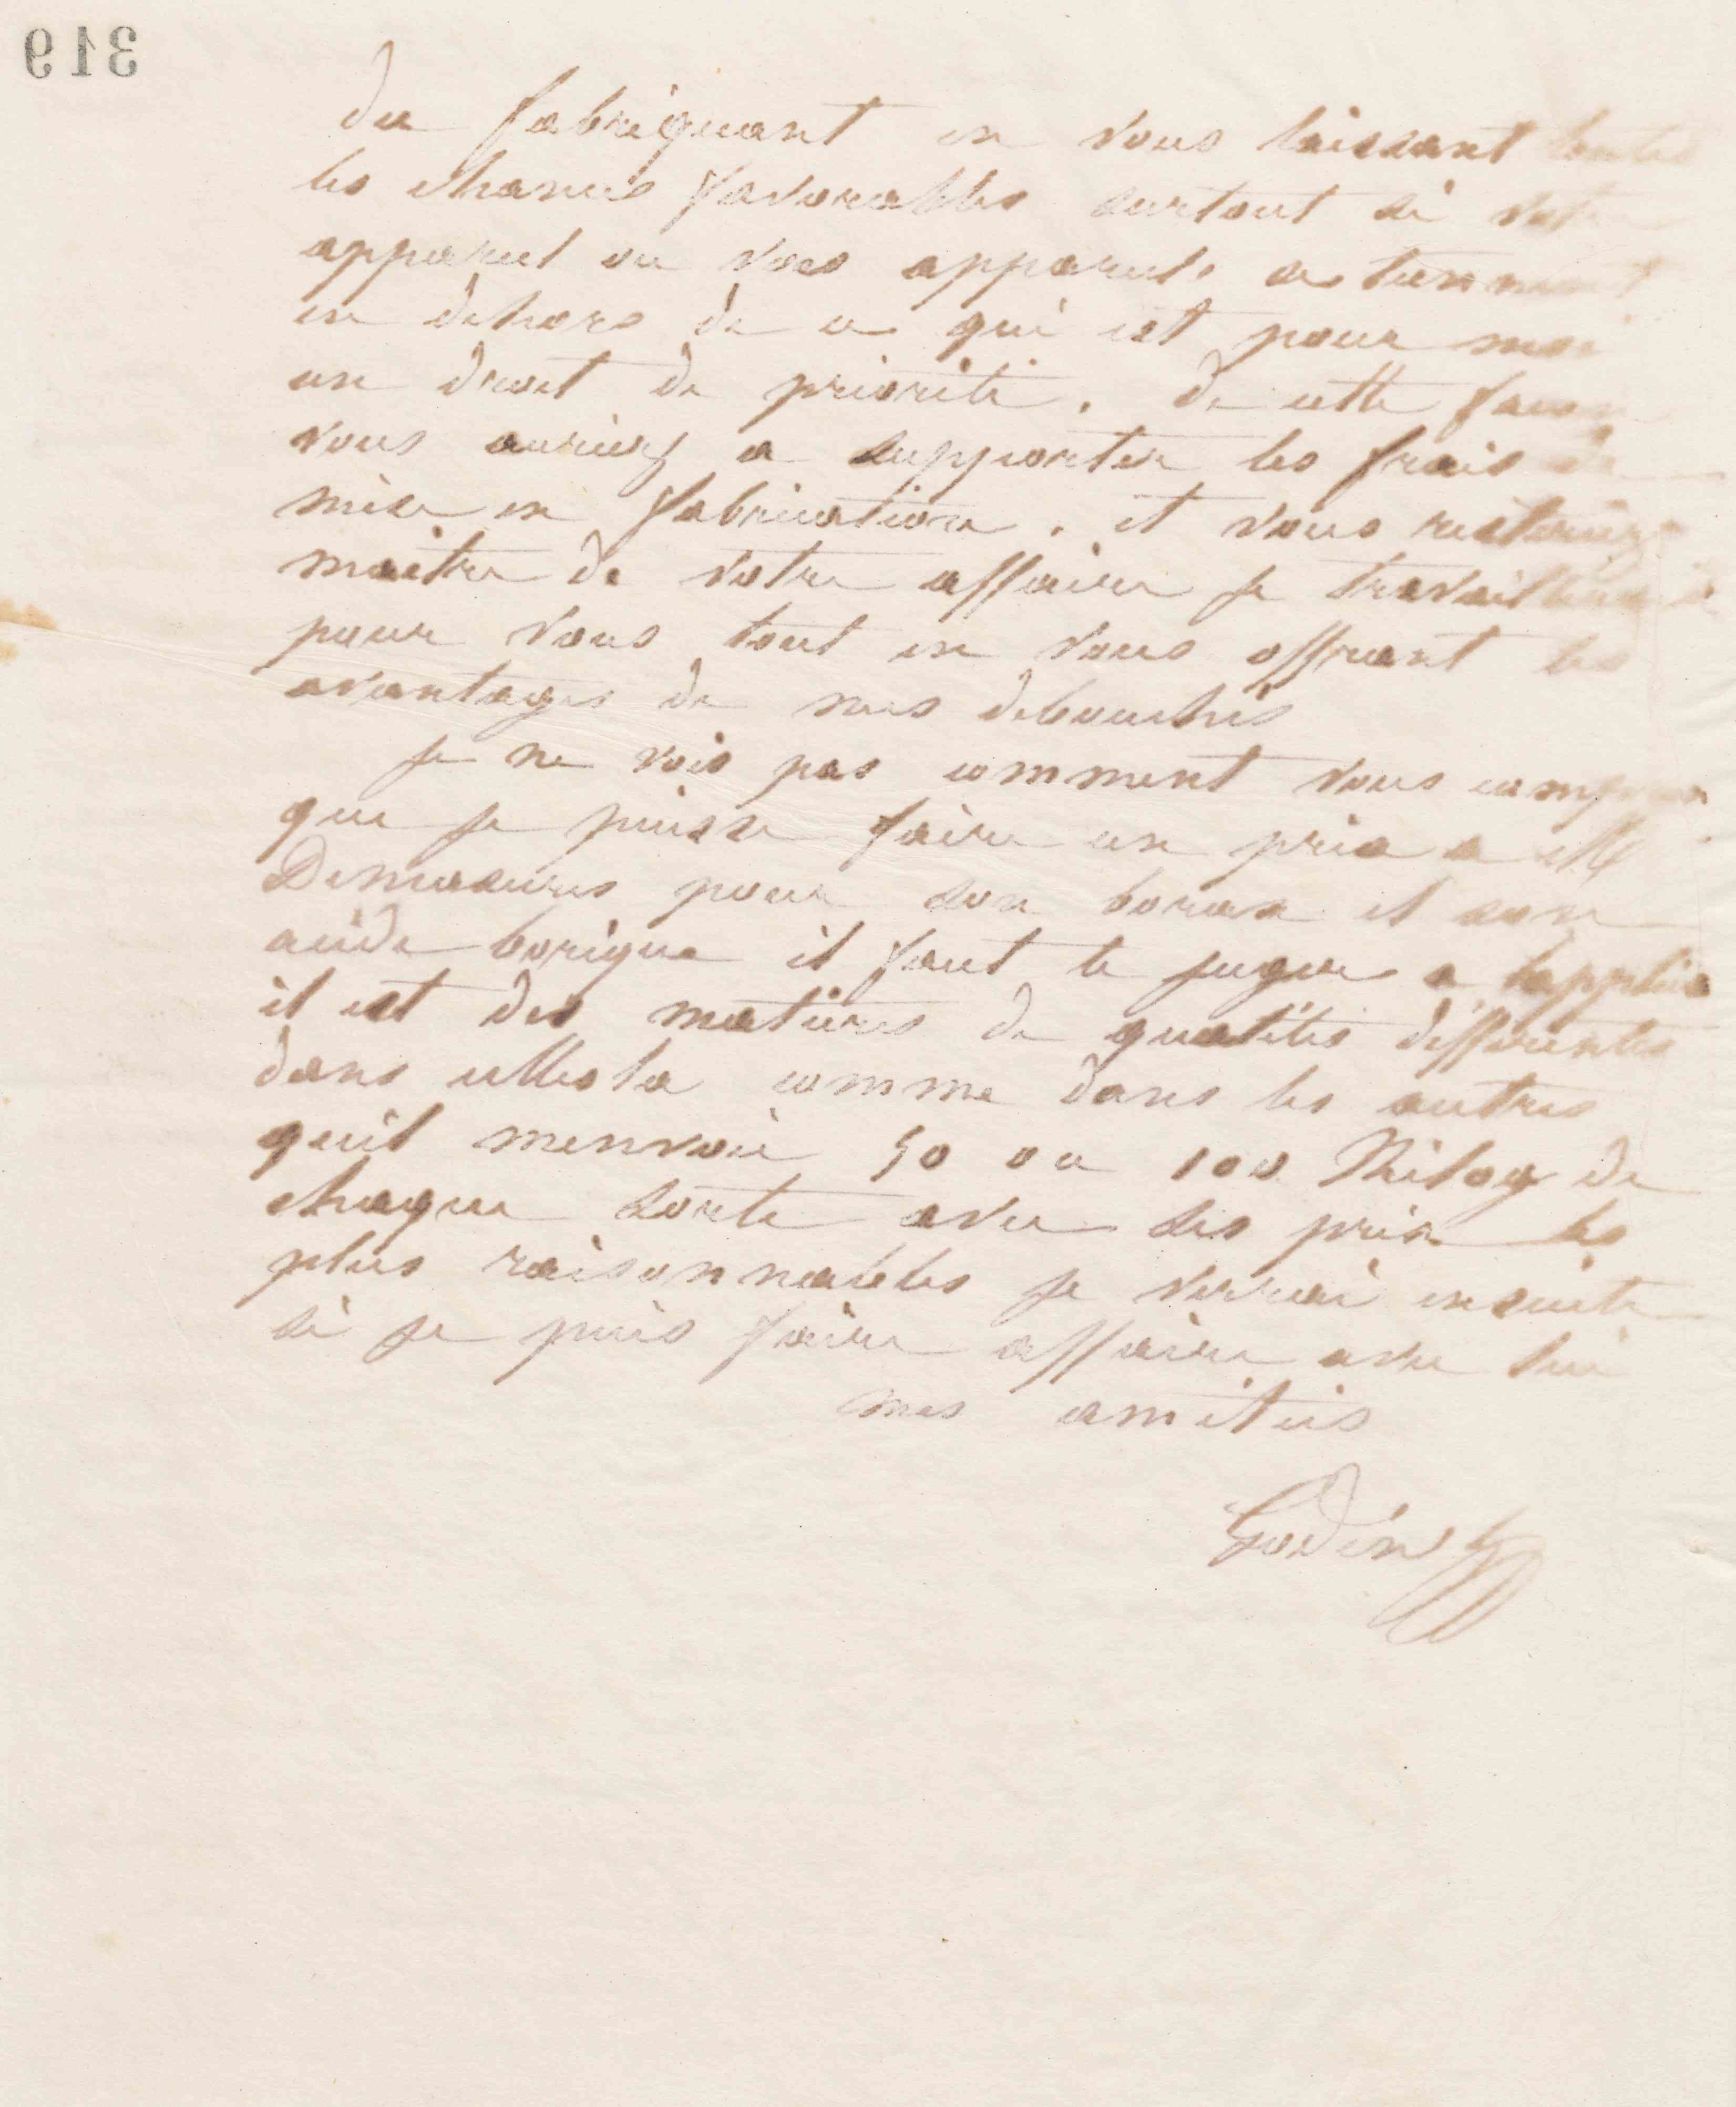 319
du fabriquant en vous laissant toutes
les chances favorables surtout si votre
appareil ou vos appareils se tiennent
en dehors de ce qui est pour moi
un droit de priorité. De cette facon
vous auriez a supporter les frais de
mise en fabrication. et vous resteriez
maitre de votre affaire je travaillerais
pour vous tout en vous offrant les
avantages de mes debouchés
je ne vois pas comment vous
que je puisse faire un prix a Mr
Demasures pour son borax et son
acide borique il faut le juger a
il est des matieres de qualités differentes
dans celles la comme dans les autres
quil menvoie 50 ou 100 Kilog de
chaque sorte avec ses prix les
plus raisonnables je verrai ensuite
si je puis faire affaire avec lui
mes amitiés
Godin